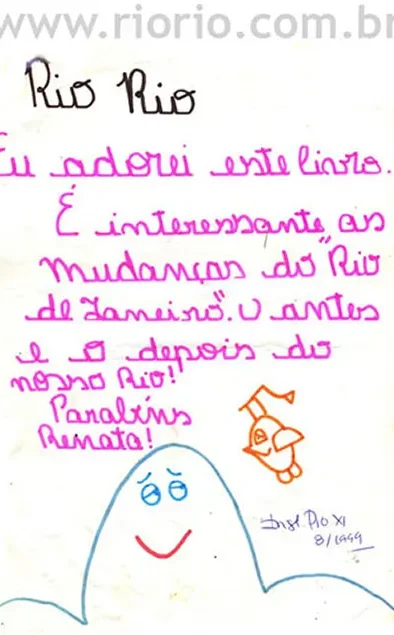 www.riorio.com.br
Rio Rio
Eu adorei este livro.
É interessante as
mudanças do "Rio
de Janeiro". O antes
e o depois do
nosso Rio!
Parabéns
Renata!
Inst. Pio XI
8/1999